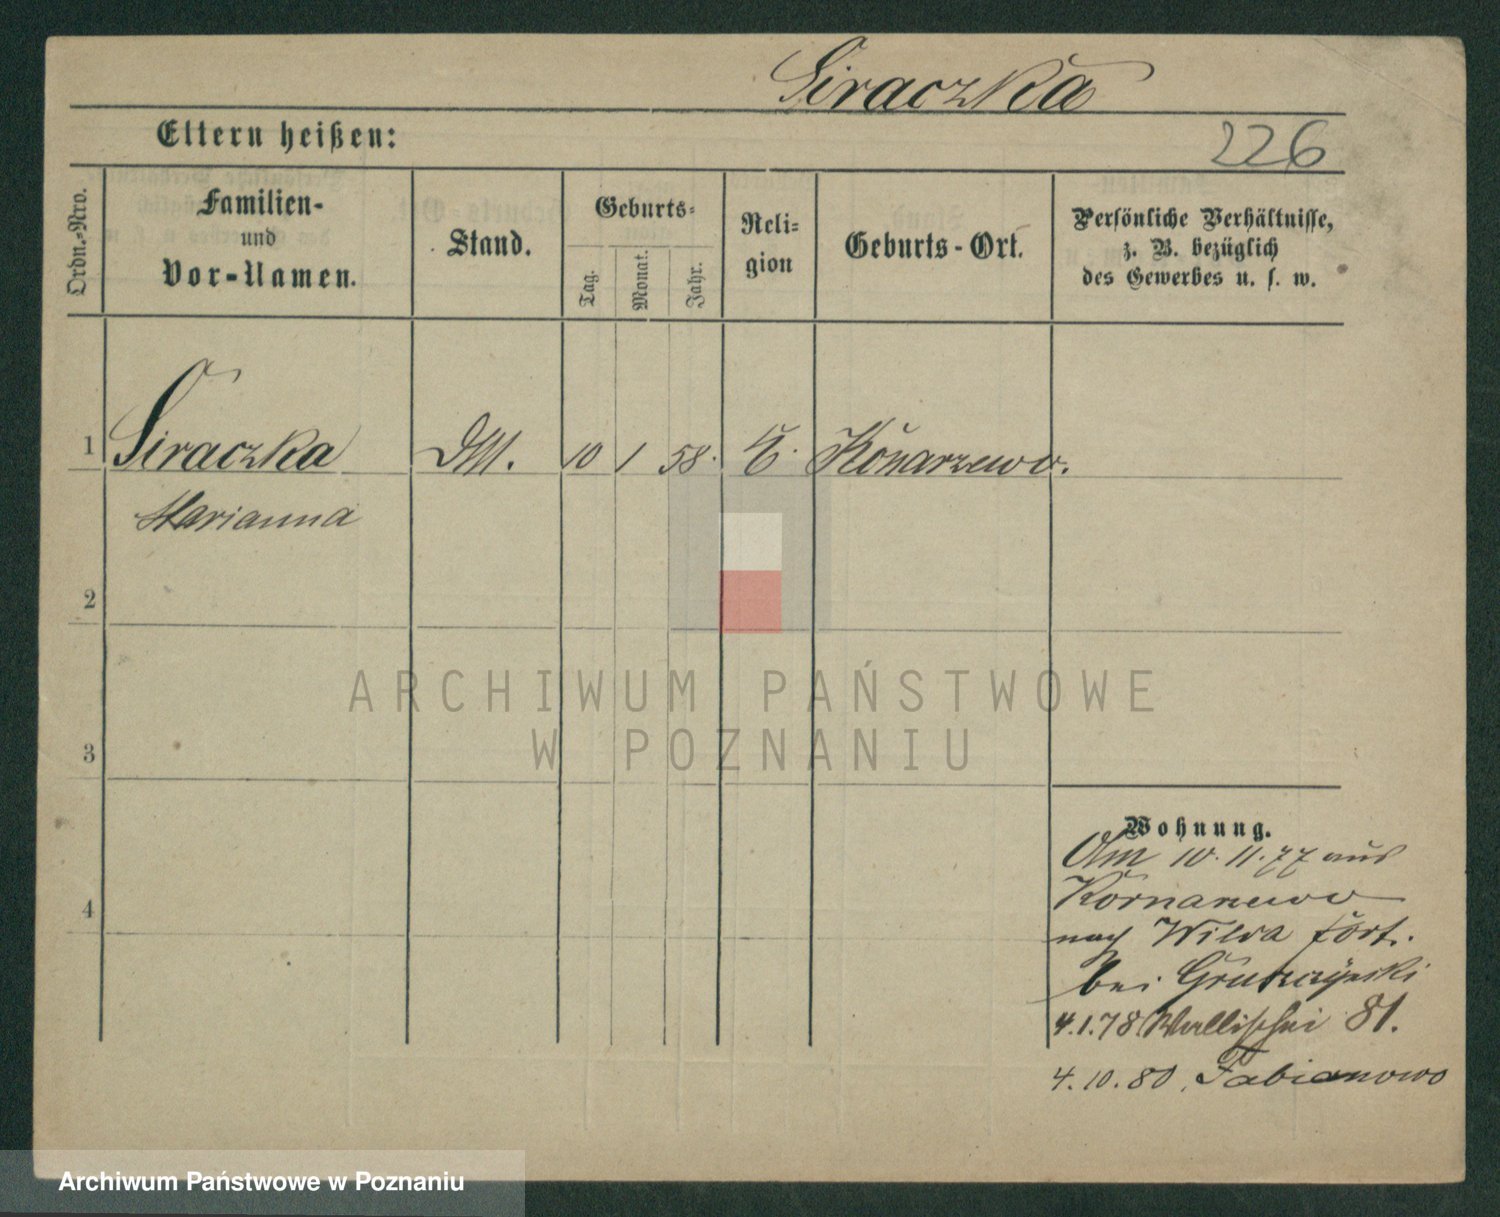 Siraczka
Eltern heißen:
226
Ordn.-Nro.
Familien-
und
Vor-Namen.
Stand.
Geburts-
Tag.
Monat.
Jahr.
Reli-
gion
Geburts-Ort.
Persönliche Verhältnisse,
z. B. bezüglich
des Gewerbes u. s. w.
1 Siraczka DM. 10 1 58. K. Konarzewo.
Marianna
2
3
4
ARCHIWUM PAŃSTWOWE
W POZNANIU
Wohnung.
Am 10.11.77 aus
nach Wilda fort.
bei
4.1.78 Wallischei 81.
4.10.80. Fabianowo
Archiwum Państwowe w Poznaniu